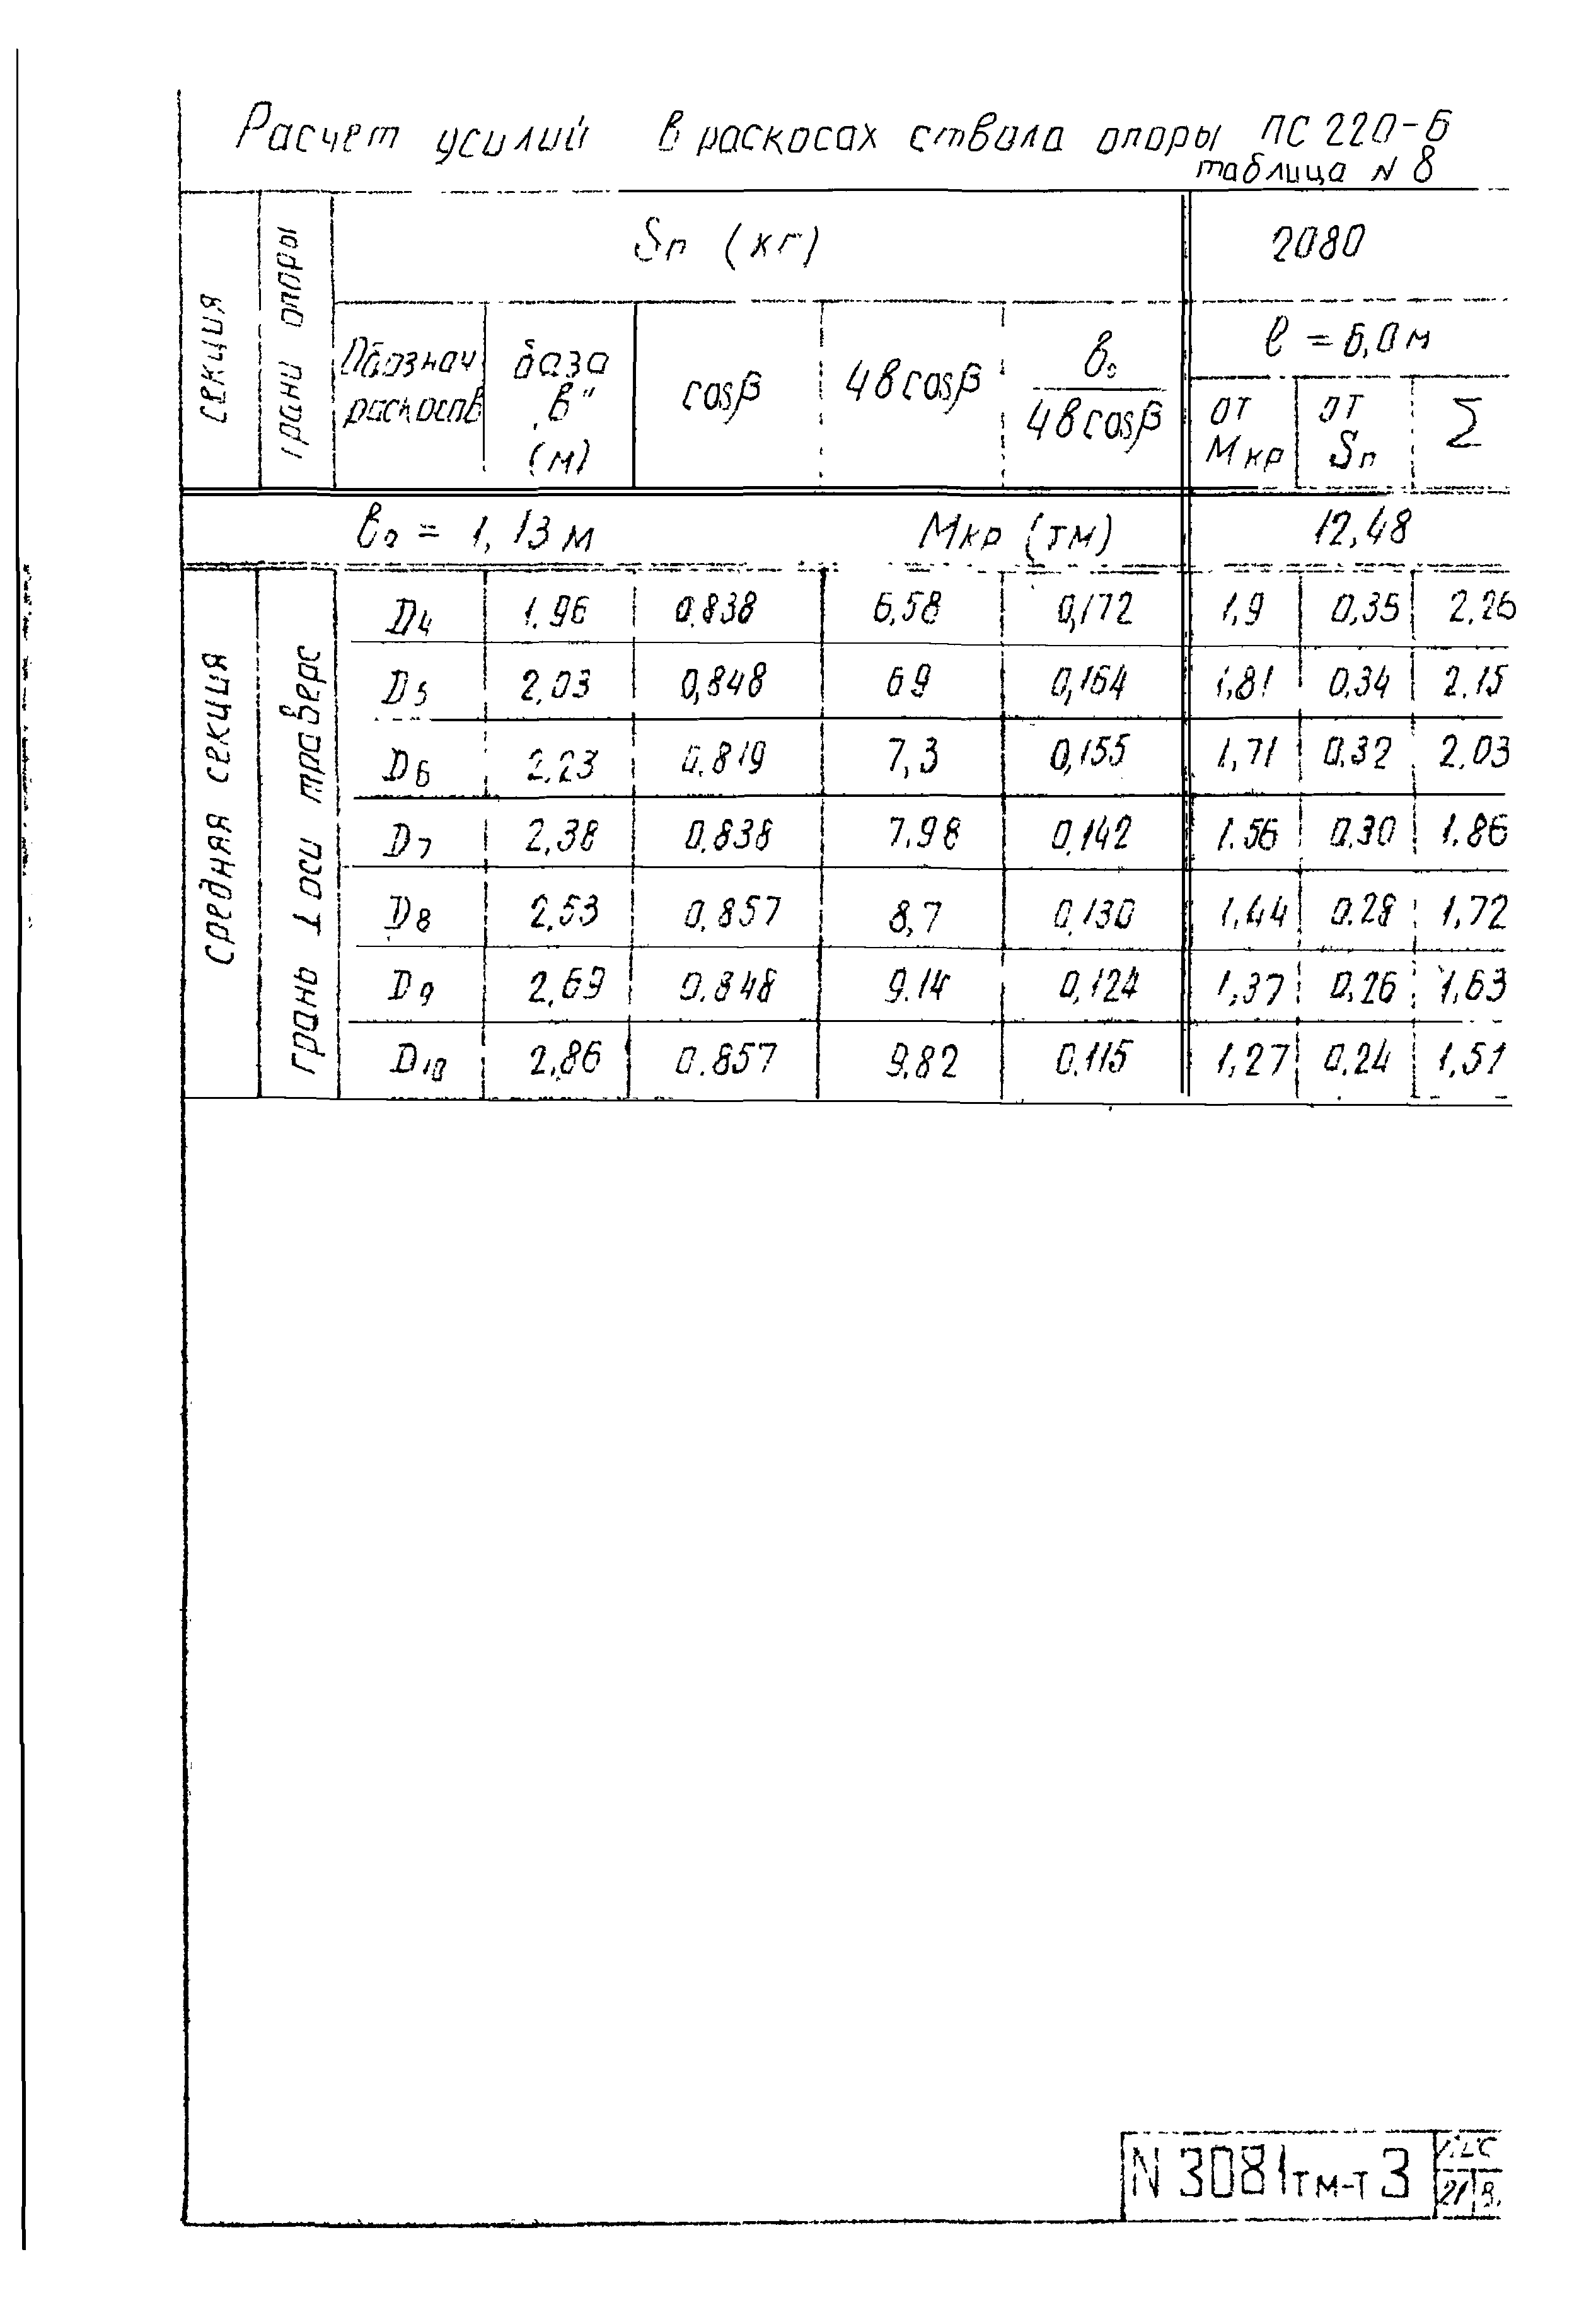 Расчет усилий в раскосах ствола опоры ПС 220-6
таблица N 8
секция
грани опоры
Sп (кг)
2080
Обознач раскосов
база "в" (м)
cosβ
4вcosβ
в₀ / 4вcosβ
ℓ = 6,0 м
от Мкр
от Sп
Σ
в₀ = 1,13 м Мкр (тм) 12,48
средняя секция
грань ⊥ оси траверс
D4 1.96 0.838 6,58 0,172 1,9 0,35 2.26
D5 2,03 0,848 69 0,164 1,81 0,34 2.15
D6 2.23 0.819 7,3 0,155 1,71 0,32 2.03
D7 2,38 0.838 7.98 0,142 1.56 0.30 1.86
D8 2,53 0,857 8,7 0,130 1,44 0.28 1,72
D9 2,69 0.848 9.14 0,124 1,37 0,26 1,63
D10 2,86 0.857 9,82 0.115 1,27 0.24 1,51
N 3081тм-т3
21